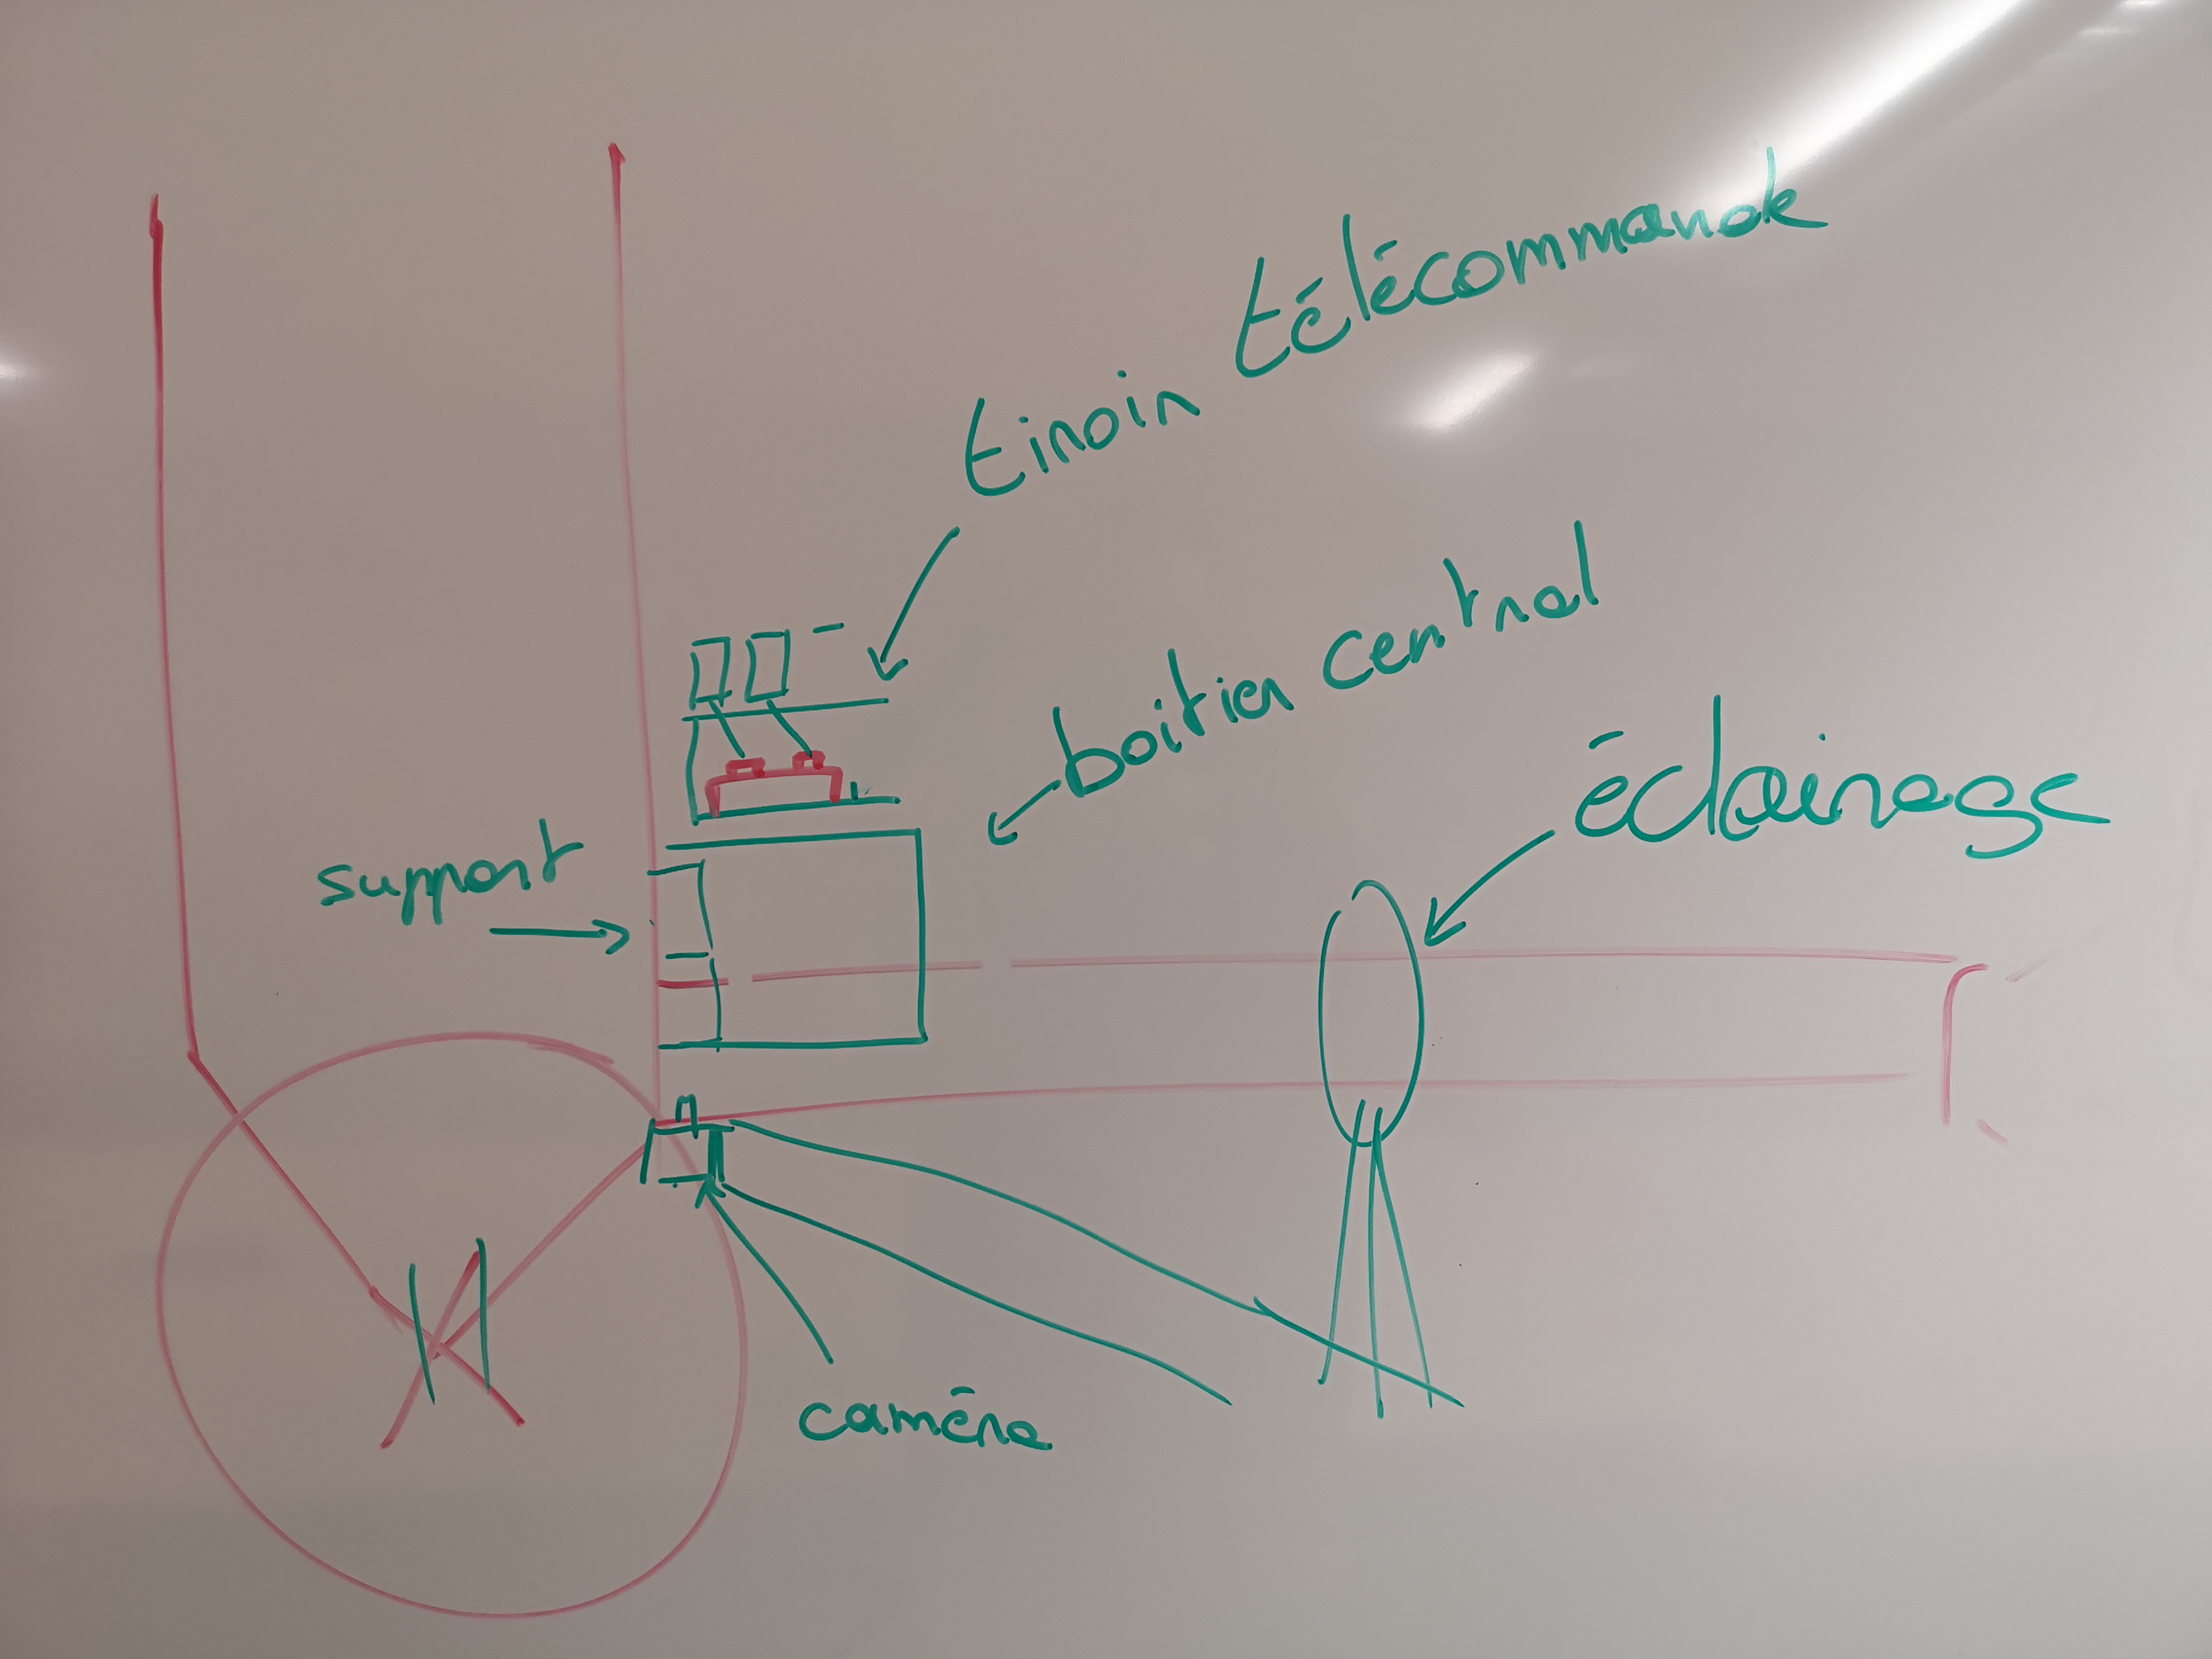 tiroir télécommande
boitier central
éclairage
support
caméra